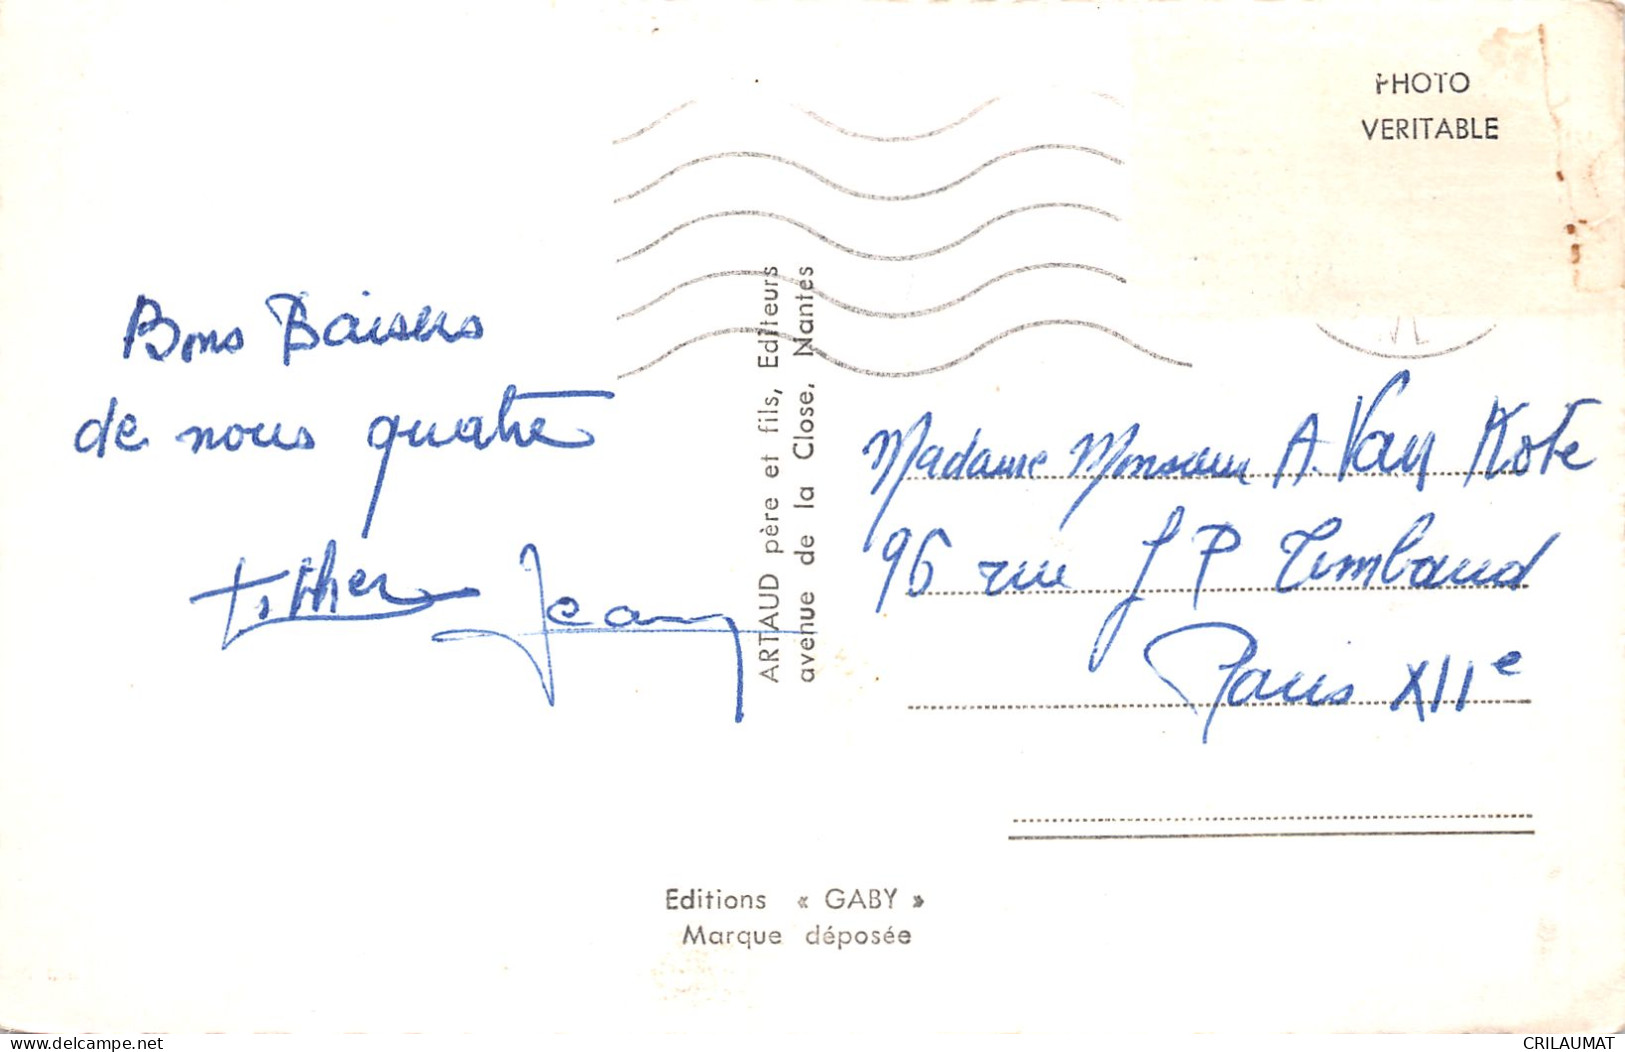 PHOTO
VERITABLE
Bons Baisers
de nous quatre
Jean
ARTAUD père et fils, Editeurs
avenue de la Close, Nantes
Madame Monsieur A. Van
96 rue J P Timbaud
Paris XIIe
Editions « GABY »
Marque déposée
www.delcampe.net
CRILAUMAT